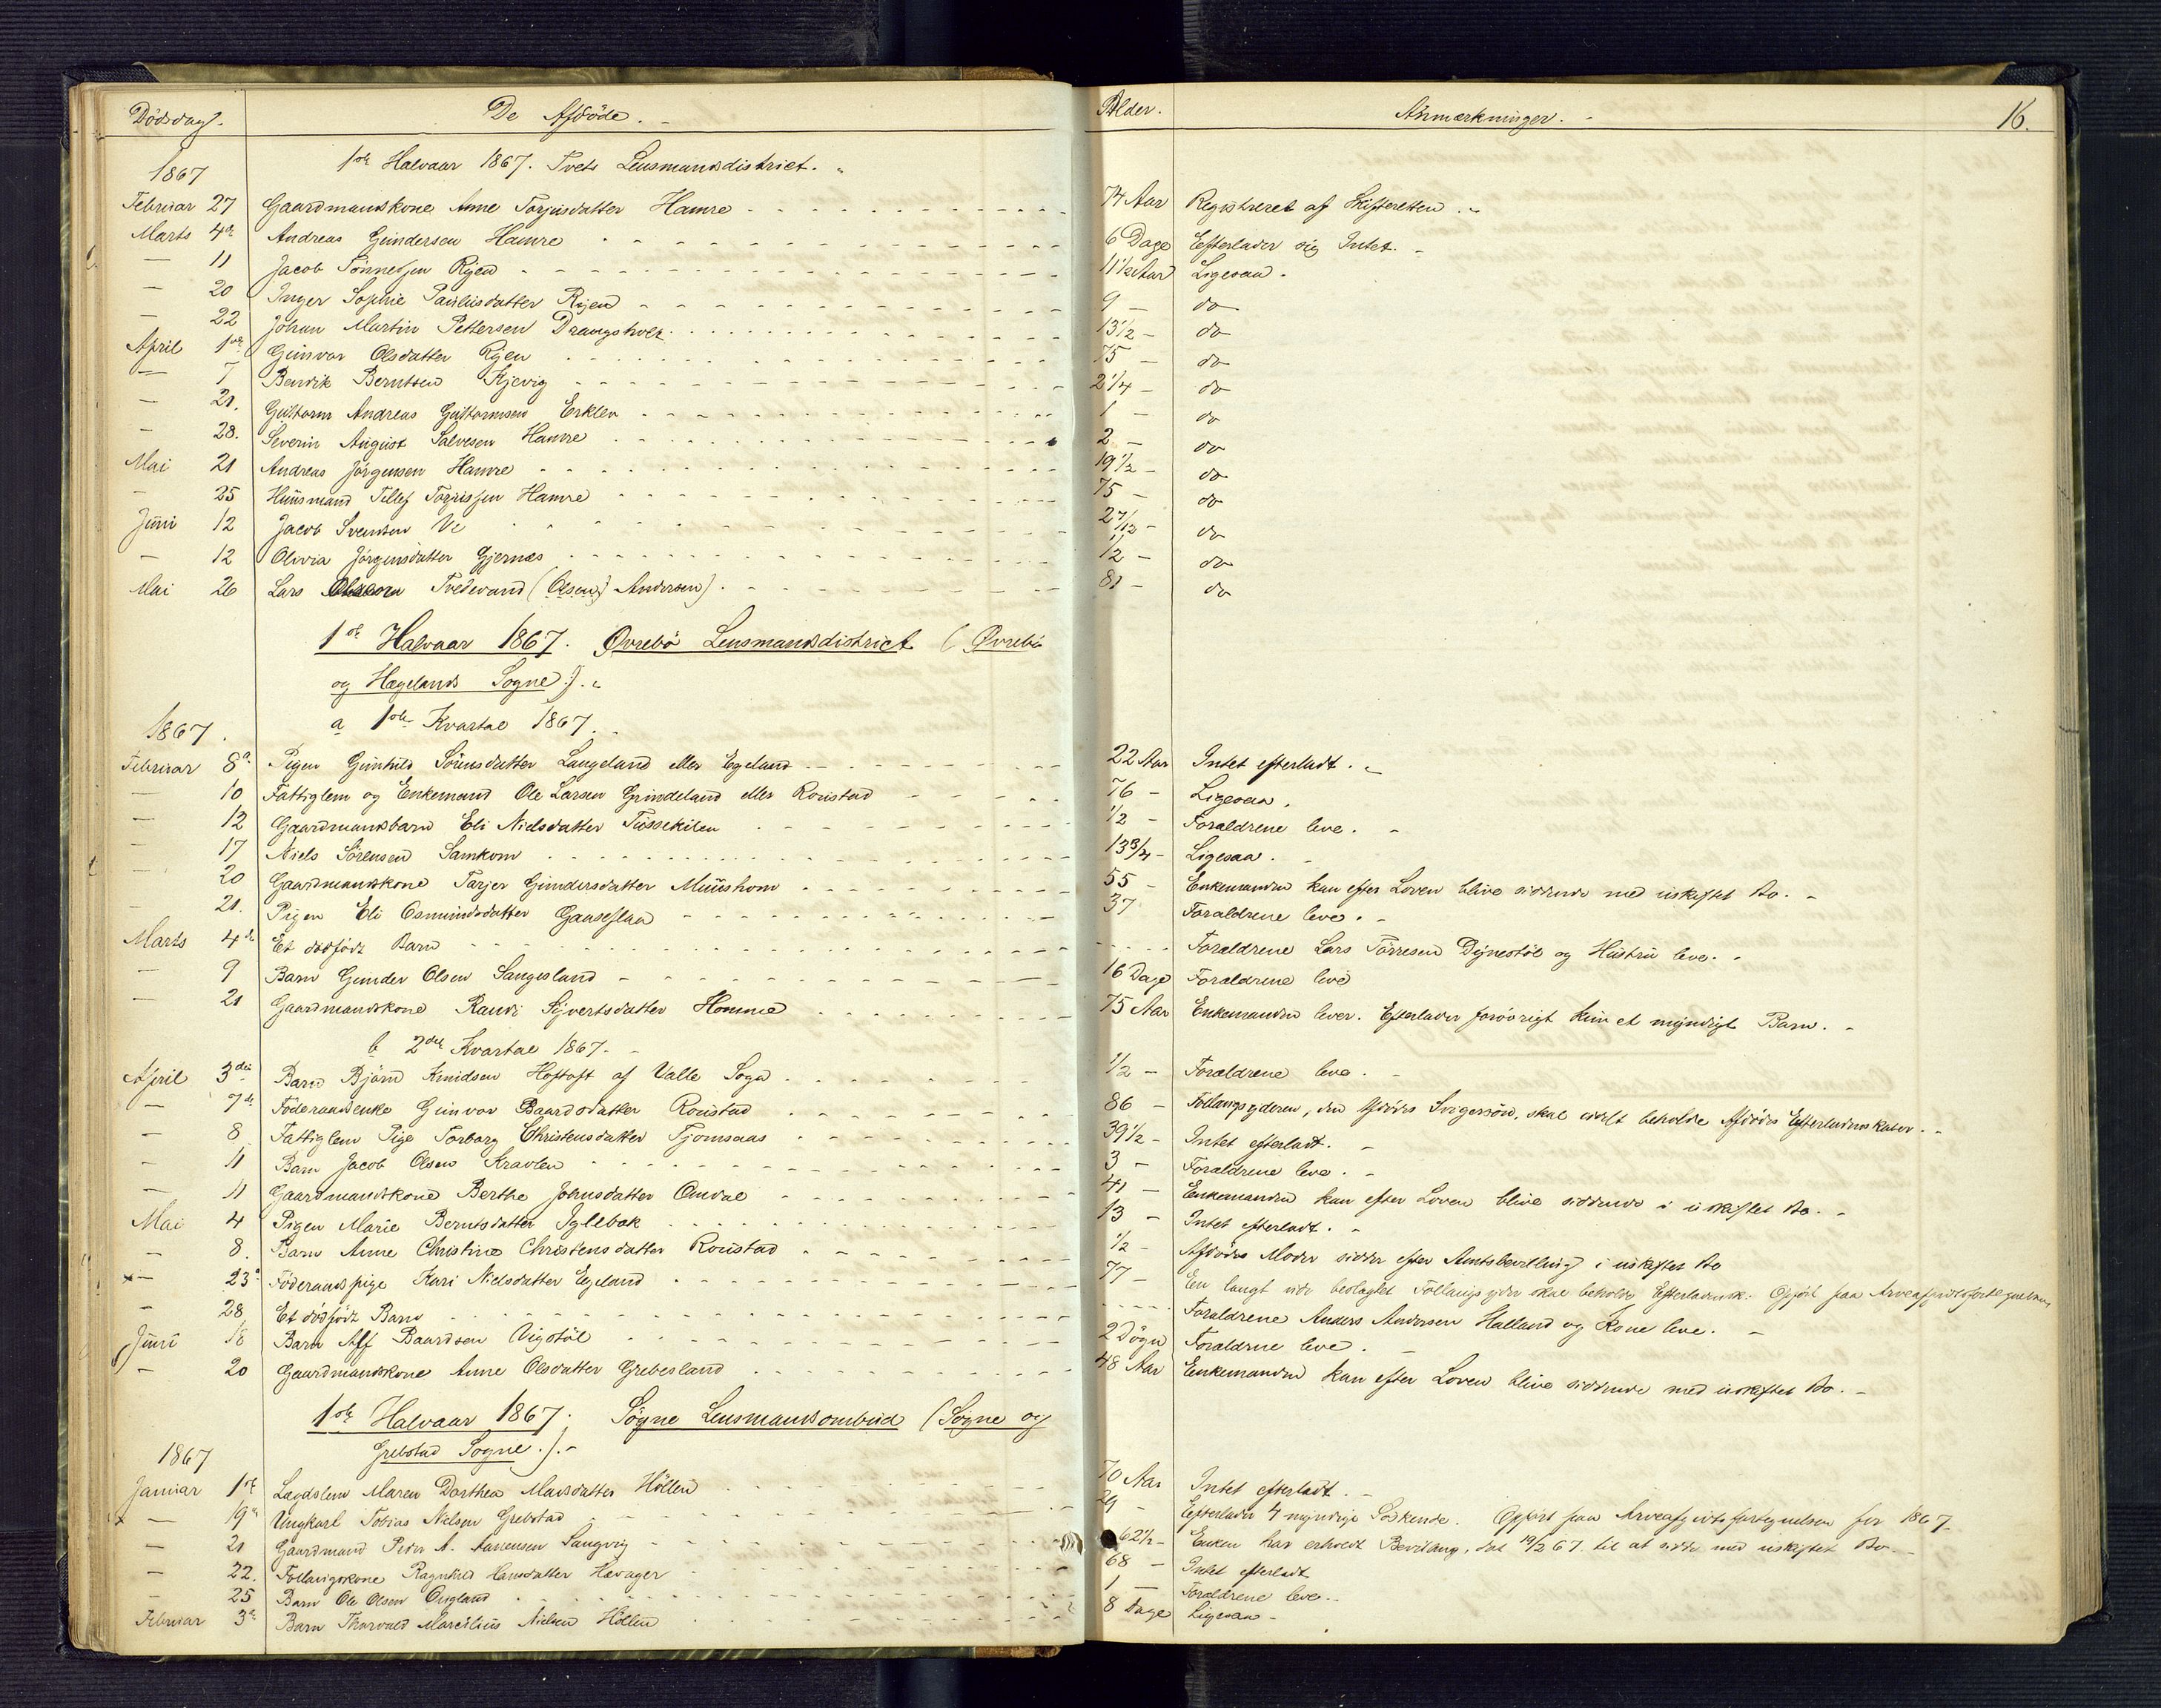 Dödsdag. De Afdöde. Alder. Anmærkninger. 16.
1867 1ste Halvaar 1867. Tvets Lensmandsdistrict.
Februar 27 Gaardmandskone Anne Torjusdatter Hamre 74 Aar Registreret af Skifteretten.
Marts 4de Andreas Gundersen Hamre 6 Dage Efterlader sig Intet.
— 11 Jacob Tönnesen Ryen 11 1/2 Aar Ligesaa.
— 20 Inger Sophie Paulusdatter Ryen 9 — do
— 22 Johan Martin Pettersen Drangsholt 13 1/2 — do
April 1ste Gunvor Olsdatter Ryen 75 — do
— 7 Bendik Berntsen Kjevig 2 1/4 — do
— 21. Guttorm Andreas Guttormsen Erklev 1 — do
— 28. Severin August Salvesen Hamre 2 — do
Mai 21 Andreas Jörgensen Hamre 19 1/2 — do
— 25 Huusmand Tellef Torrissen Hamre 75 — do
Juni 12 Jacob Svendsen Ve 2 7/12 — do
— 12 Olivia Jörgensdatter Gjernæs 1/2 — do
Mai 26 Lars Tvedevand (Olsen) Andersen). 81 — do
1ste Halvaar 1867. Øvrebö Lensmandsdistrict (Øvrebö
og Hægelands Sogne).
1867. a 1ste Kvartal 1867.
Februar 8de Pigen Gunhild Sörensdatter Langeland eller Egeland 22 Aar Intet efterladt.
— 10 Fattiglem og Enkemand Ole Larsen Grindeland eller Roustad 76 — Ligesaa.
— 12 Gaardmandsbarn Eli Nielsdatter Tussekilen 1/2 — Forældrene leve.
— 17 Niels Sörensen Samkom 13 3/4 — Ligesaa.
— 20 Gaardmandskone Tarjer Gundersdatter Muushom 55 — Enkemanden kan efter Loven blive siddende med uskiftet Bo.
— 21. Pigen Eli Osmundsdatter Gaaseflaa 37 Forældrene leve.
Marts 4de Et dödfödt Barn Forældrene Lars Törresen Dynestöl og Hustru leve.
— 9 Barn Gunder Olsen Sangesland 16 Dage Forældrene leve
— 21 Gaardmandskone Randi Syvertsdatter Homme 75 Aar Enkemanden lever. Efterlader forövrigt kun et myndigt Barn.
b 2det Kvartal 1867.
April 3die Barn Björn Knudsen Hoftoft af Valle Sogn 1/2 — Forældrene leve.
— 7de Föderaadsenke Gunvor Baardsdatter Roustad 86 — Follaugsyderen, den Afdödes Svigersön, skal beholde Afdödes Efterladenskaber.
— 8 Fattiglem Pige Torborg Christensdatter Tjomsaas 39 1/2 — Intet efterladt.
— 11 Barn Jacob Olsen Kravlen 3 — Forældrene leve.
— 11 Gaardmandskone Berthe Johnsdatter Omdal 41 — Enkemanden kan efter Loven blive siddende i uskiftet Bo.
Mai 4 Pigen Marie Berntsdatter Iglebæk 13 — Intet efterladt.
— 8. Barn Anne Christine Christensdatter Roustad 1/2 — Afdödes Moder sidder efter Amtsbevilling i uskiftet Bo
x — 23de Föderaadspige Kari Nielsdatter Egeland 77 — En langt ude beslægtet Follaugsyder skal beholde Efterladensk. Opfört paa Arveafgiftsfortegnelsen
— 28 Et dödfödt Barn Forældrene Anders Andersen Halland og Kone leve.
Juni 18 Barn Aff Baardsen Vigstöl 2 Dögn Forældrene leve.
— 20 Gaardmandskone Anne Olsdatter Grebesland 48 Aar Enkemanden kan efter Loven blive siddende med uskiftet Bo.
1ste Halvaar 1867; Sögne Lensmandsombud (Sögne og
1867 Grebstad Sogne.).
Januar 1ste Lægdslem Maren Dorthea Madsdatter Höllen 70 Aar Intet efterladt.
x — 19de Ungkarl Tobias Nielsen Grebstad 29 — Efterlader 4 myndige Södskende. Opfört paa Arveafgiftsfortegnelsen for 1867.
— 21 Gaardmand Peder A. Aanensen Langvig 62 1/2 — Enken har erholdt Bevilling, dat 19/2 67. til at sidde med uskiftet Bo.
— 22. Follaugskone Ragnhild Hansdatter Havager 68 — Intet efterladt
— 25 Barn Ole Olsen Ougland 1 — Forældrene leve.
Februar 3de Barn Thorvald Marcilius Nielsen Höllen 8 Dage Ligesaa